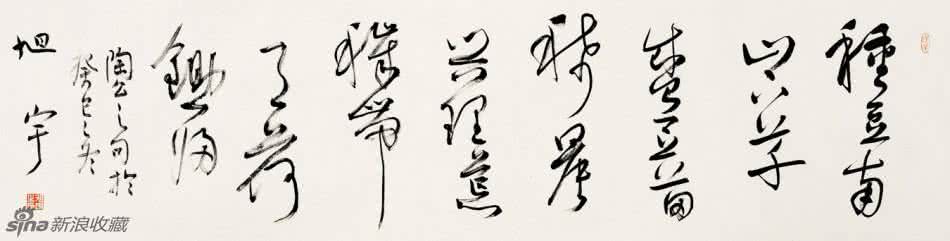 種豆南
山下草
盛豆苗
稀晨
兴理荒
穢帶
月荷
鋤歸
陶公之句於
癸巳之冬
旭宇
sina新浪收藏